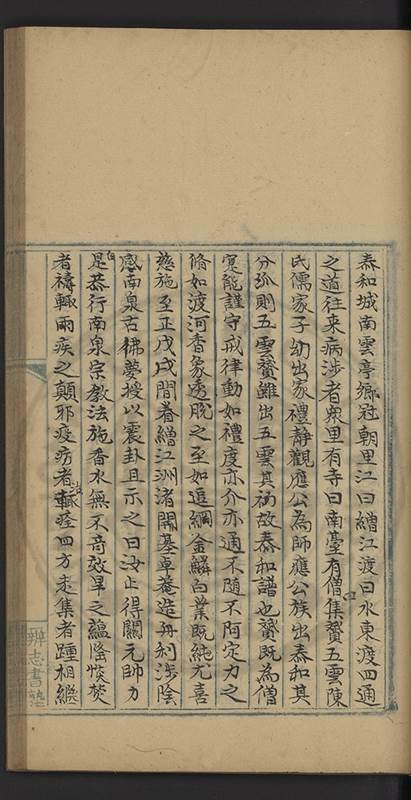 泰和城南雲亭鄉冠朝里江曰繒江渡曰水東渡四通
之道往来病涉者衆里有寺曰南臺有僧集贊五雲陳
氏儒家子幼出家禮静觀應公為師應公族出泰和其
分孤則五雲贊雖出五雲其初故泰和譜也贊既為僧
寔能謹守戒律動如禮度亦介亦通不随不阿定力之
脩如渡河香象透脱之至如逭綱金鱗白業既純尤喜
慈施至正戊戌間眷繒江洲渚開基卓菴造舟利涉陰
感南泉古佛夢授以震卦且示之曰汝止得關元帥力
是恭行南泉宗教法施香水無不竒效旱之蘊隆惔焚
者禱輒雨疾之顛邪疫疠者輒痊四方走集者踵相繼